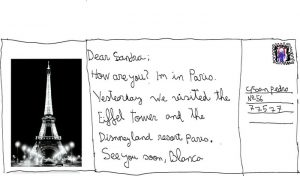 Dear Sandra:
How are you? Im in Paris.
Yesterday we visited the
Eiffel tower and the
Disneyland resort paris.
See you soon, Blanca
C/San Pedro
Nº 56
77527